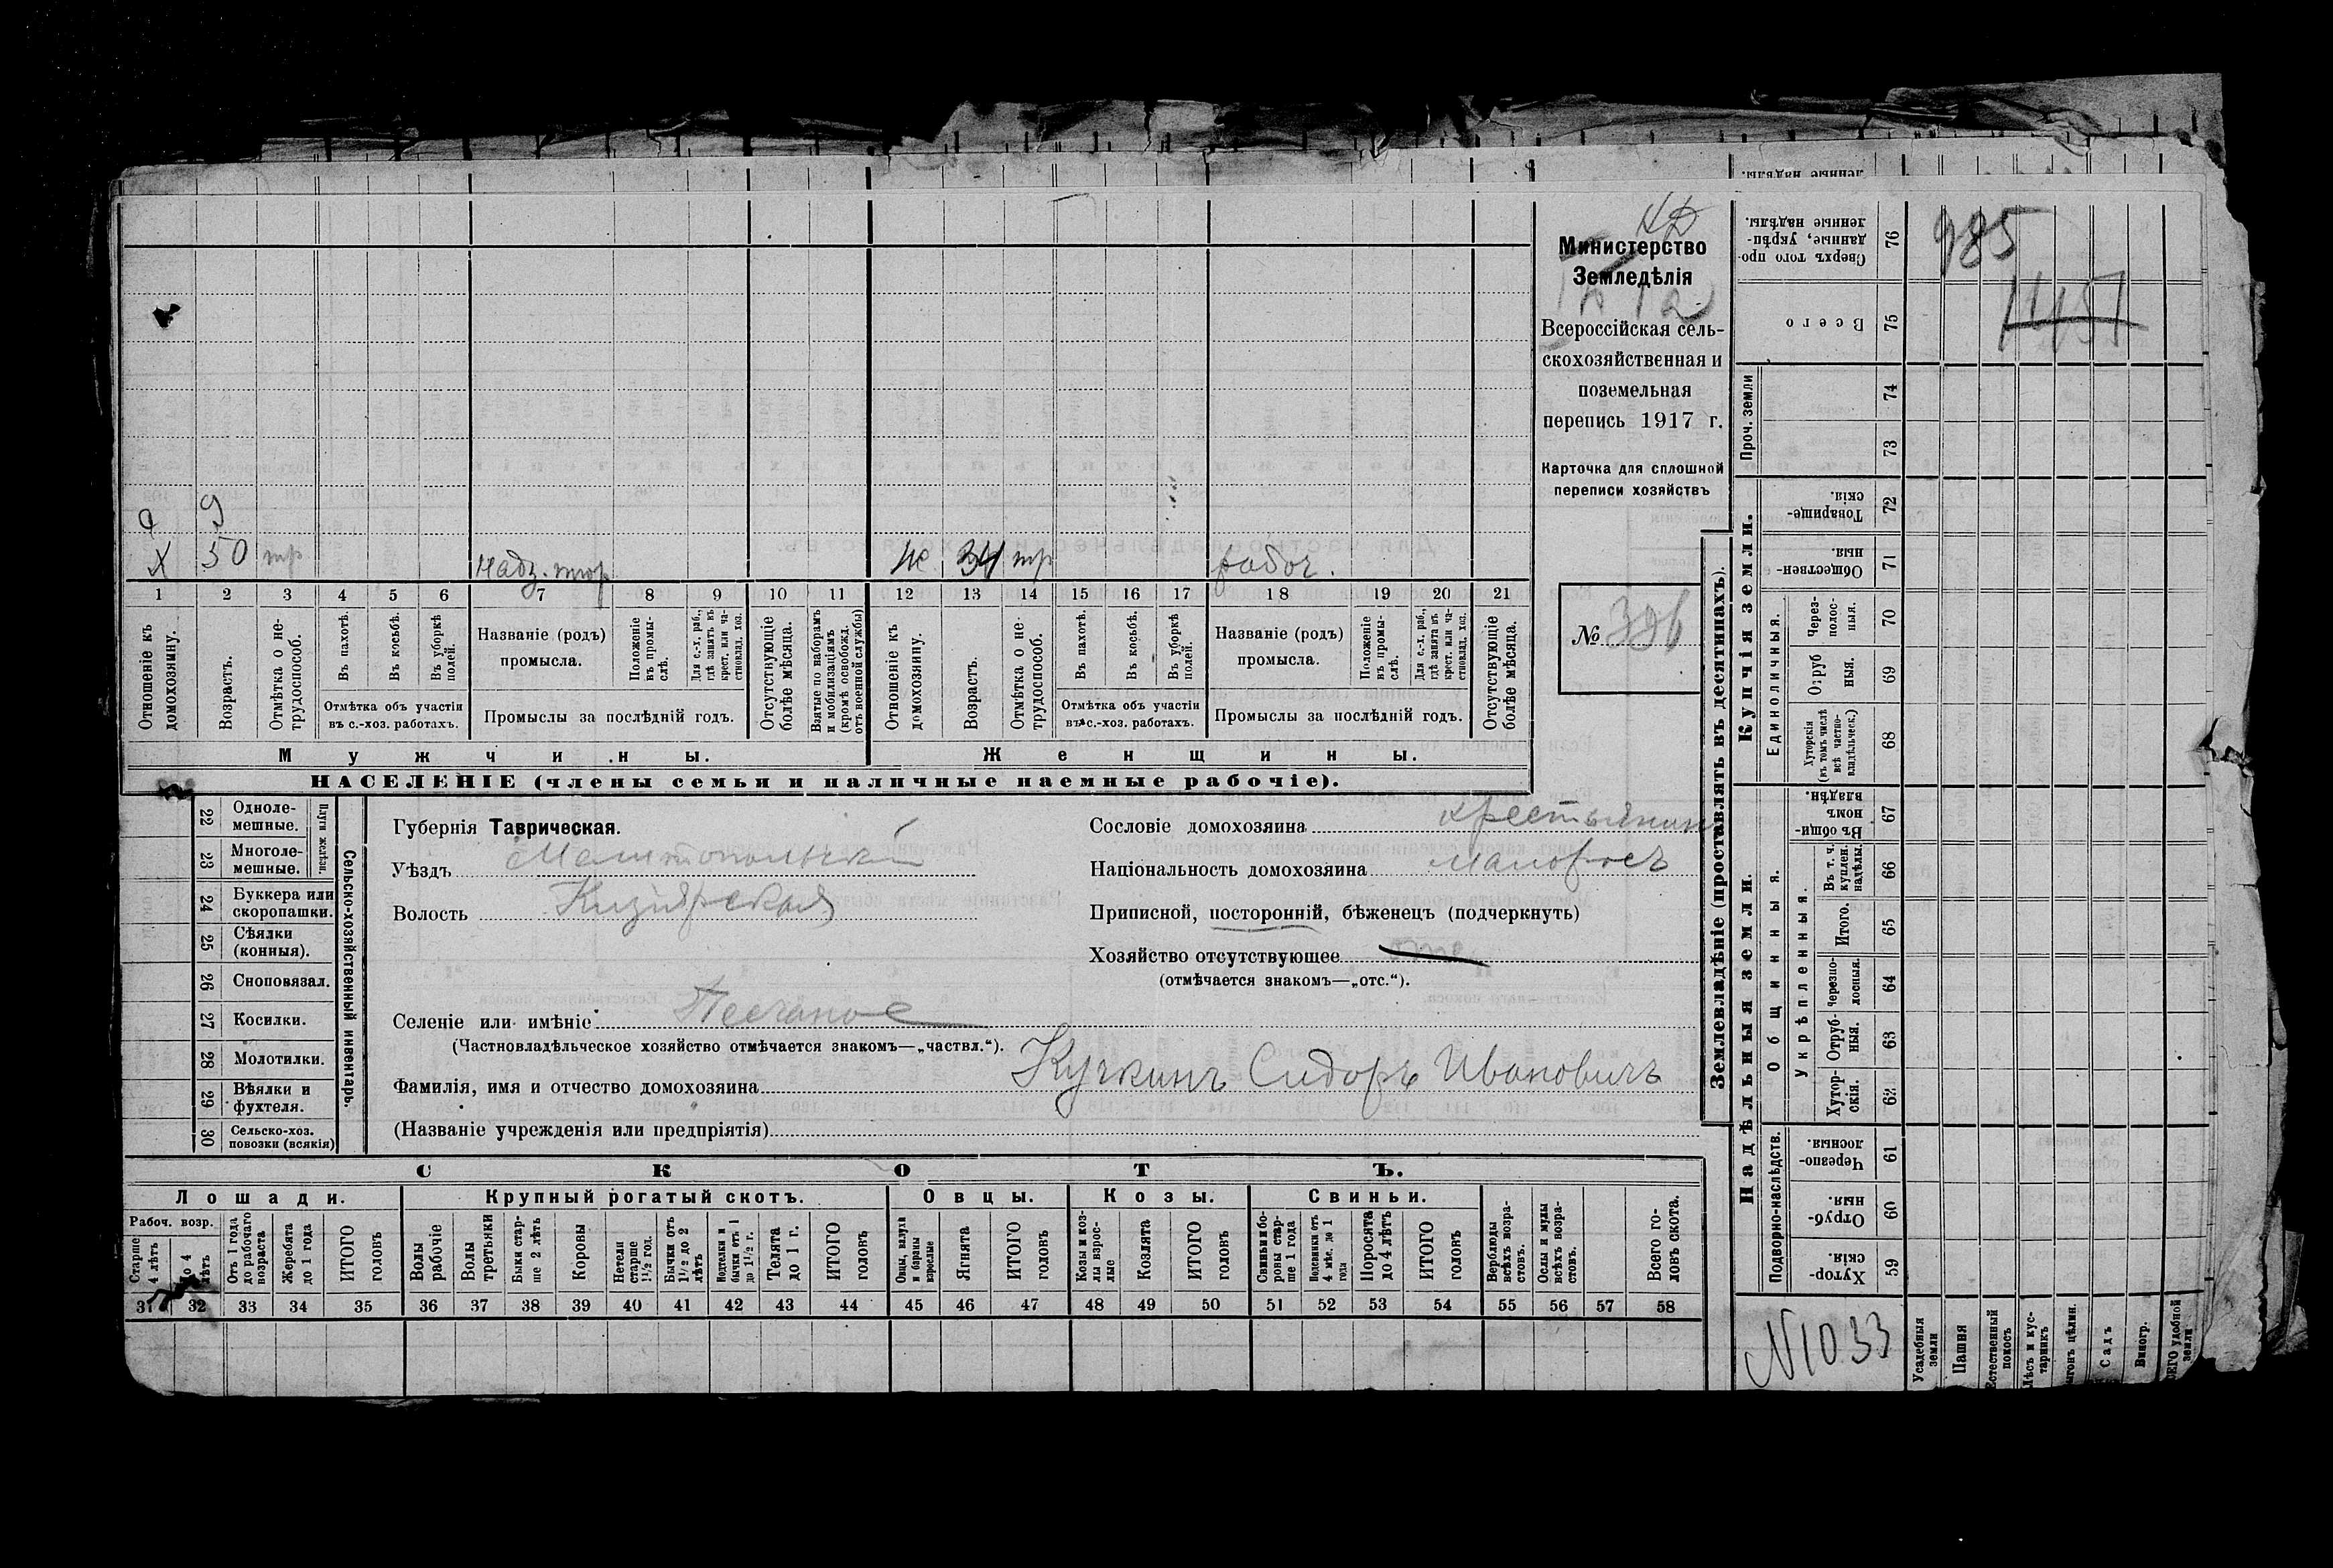 Министерство
Земледѣлія
Всероссійская сель-
скохозяйственная и
поземельная
перепись 1917 г.
Карточка для сплошной
переписи хозяйствъ
№ 396
9
Х 50 тр надз. тюр ж 34 тр работ.
1 2 3 4 5 6 7 8 9 10 11 12 13 14 15 16 17 18 19 20 21
Отношеніе къ домохозяину.
Возрастъ.
Отмѣтка о не-трудоспособ.
Въ пахотѣ.
Въ косьбѣ.
Въ уборкѣ полей.
Отмѣтка объ участіи
въ с.-хоз. работахъ.
Названіе (родъ)
промысла.
Положеніе въ промы-слѣ.
Для с.-х. раб., гдѣ занять въ крест. или ча-стновлад. хоз.
Промыслы за послѣдній годъ.
Отсутствующіе болѣе мѣсяца.
Взятые по наборамъ и мобилизаціямъ (кромѣ освобожд. отъ военной службы)
Отношеніе къ домохозяину.
Возрастъ.
Отмѣтка о не-трудоспособ.
Въ пахотѣ.
Въ косьбѣ.
Въ уборкѣ полей.
Отмѣтка объ участіи
въ с.-хоз. работахъ.
Названіе (родъ)
промысла.
Положеніе въ промы-слѣ.
Для с.-х. раб., гдѣ занята въ крест. или ча-стновлад. хоз.
Промыслы за послѣдній годъ.
Отсутствующіе болѣе мѣсяца.
Мужчины. Женщины.
НАСЕЛЕНІЕ (члены семьи и наличные наемные рабочіе).
22 Одноле-мешные.
23 Многоле-мешные.
Плуги желѣзн.
24 Буккера или скоропашки.
25 Сѣялки (конныя).
26 Сноповязал.
27 Косилки.
28 Молотилки.
29 Вѣялки и фухтеля.
30 Сельско-хоз. повозки (всякія)
Сельско-хозяйственный инвентарь.
Губернія Таврическая.
Уѣздъ Мелитопольскій
Волость Кизіярская
Селеніе или имѣніе Песчаное
(Частновладѣльческое хозяйство отмѣчается знакомъ—„частвл.“).
Фамилія, имя и отчество домохозяина Кучкинъ Сидоръ Ивановичъ
(Названіе учрежденія или предпріятія)
Сословіе домохозяина крестьянин
Національность домохозяина малорос
Приписной, посторонній, бѣженецъ (подчеркнуть)
Хозяйство отсутствующее
(отмѣчается знакомъ—„отс.“).
СКОТЪ.
Лошади. Крупный рогатый скотъ. Овцы. Козы. Свиньи.
Рабоч. возр.
Старше 4 лѣтъ
До 4 лѣтъ
Отъ 1 года до рабочаго возраста
Жеребята до 1 года
ИТОГО головъ
Волы рабочіе
Волы третьяки
Быки стар-ше 2 лѣтъ
Коровы
Нетели старше 1½ год.
Бычки отъ 1½ до 2 лѣтъ
Подтелки и бычки отъ 1 до 1½ г.
Телята до 1 г.
ИТОГО головъ
Овцы, валухи и бараны взрослые
Ягнята
ИТОГО головъ
Козы и коз-лы взрос-лые
Козлята
ИТОГО головъ
Свиньи и бо-ровы стар-ше 1 года
Подсвинки отъ 4 мѣс. до 1 года
Поросята до 4 лѣтъ
ИТОГО головъ
Верблюды всѣхъ возра-стовъ.
Ослы и мулы всѣхъ возра-стовъ.
Всего го-ловъ скота.
31 32 33 34 35 36 37 38 39 40 41 42 43 44 45 46 47 48 49 50 51 52 53 54 55 56 57 58
Землевладѣніе (проставлять въ десятинахъ).
Надѣльныя земли. Купчія земли.
Проч. земли
Подворно-наслѣдств.
Общинныя.
Укрѣпленныя.
Единоличныя.
Сверхъ того про-данные, укрѣп-ленные надѣлы. 76
Всего 75
74
73
Товарище-скія. 72
Обществен-ныя 71
Через-полос-ныя. 70
Отруб-ныя. 69
Хуторскія (въ томъ числѣ всѣ частно-владѣльческ.) 68
Въ общи-номъ владѣн. 67
Въ т. ч. куплен. надѣлы. 66
Итого. 65
Черезпо-лосныя. 64
Отруб-ныя. 63
Хутор-скія. 62
Черезпо-лосныя. 61
Отруб-ныя. 60
Хутор-скія 59
985
N1033
Усадебныя земли
Пашня
Естественный покосъ
Лѣсъ и кус-тарникъ
Садъ
Виногр.
удобной земли